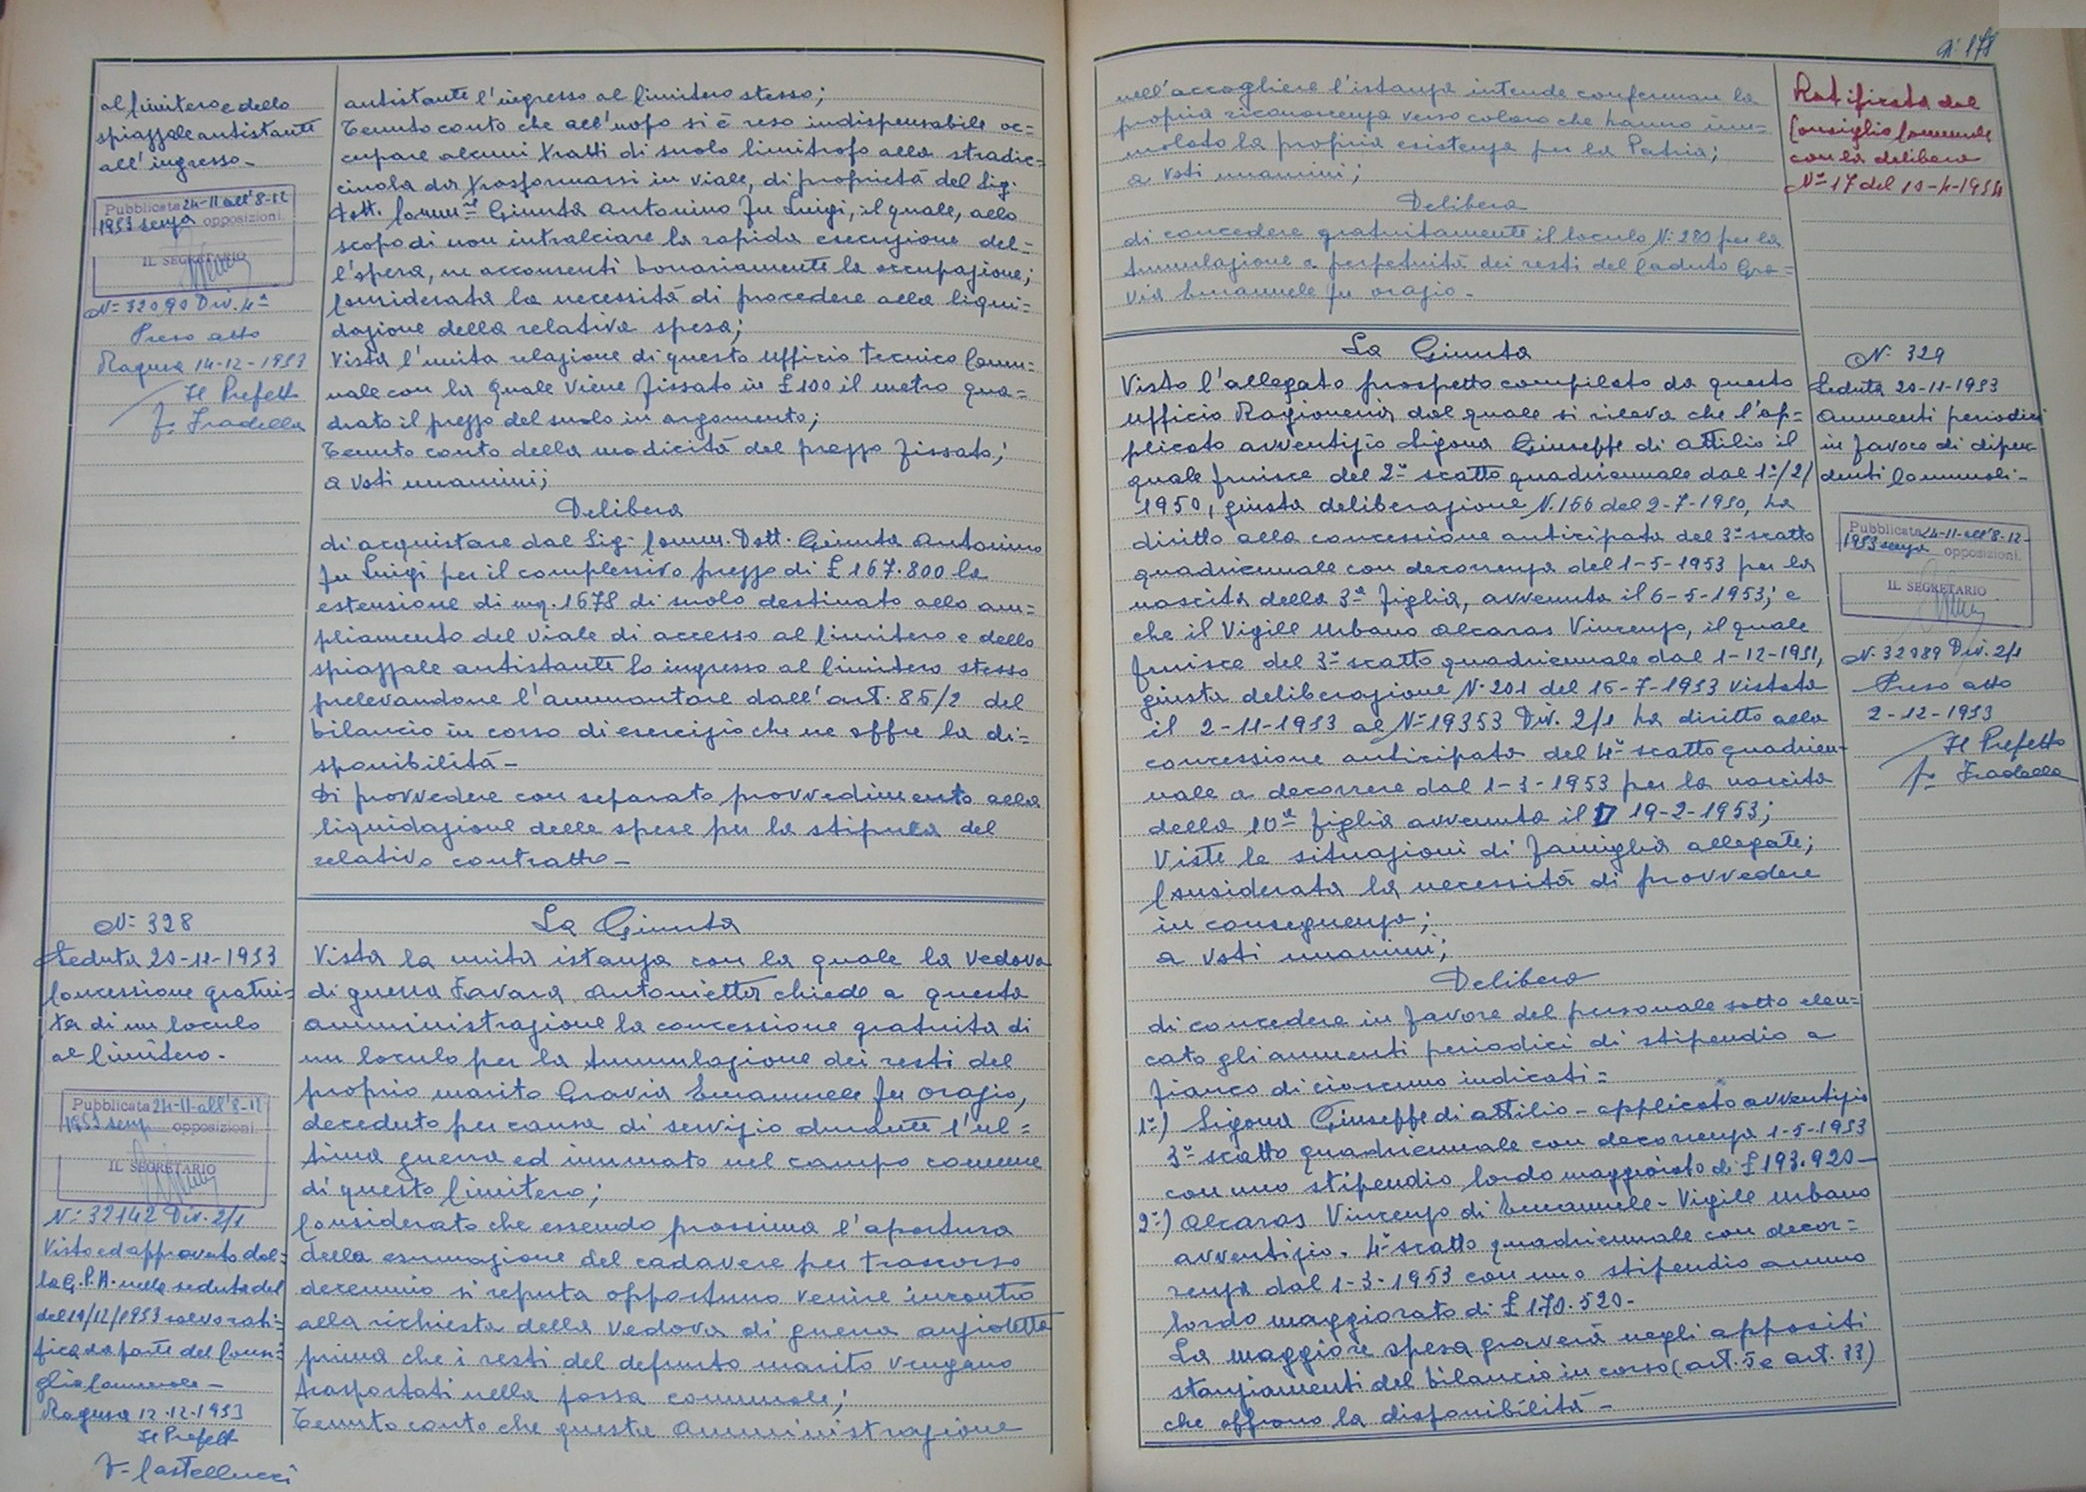 al Cimitero e dello
spiazzale antistante
all'ingresso -
Pubblicata 24-11 all'8-12
1953 senza opposizioni.
IL SEGRETARIO
N= 32090 Div. 4ª
Preso atto
Ragusa 14-12-1953
Il Prefetto
f. Fradella
antistante l'ingresso al Cimitero stesso;
Tenuto conto che all'uopo si è reso indispensabile oc=
cupare alcuni tratti di suolo limitrofo alla stradic=
ciuola da trasformarsi in viale, di proprietà del Sig.
Dott. Comm. Giunta Antonino fu Luigi, il quale, allo
scopo di non intralciare la rapida esecuzione del=
l'opera, ne acconsentì bonariamente la occupazione;
Considerata la necessità di procedere alla liqui=
dazione della relativa spesa;
Vista l'unita relazione di questo Ufficio Tecnico Comu=
nale con la quale viene fissato in £ 100 il metro qua=
drato il prezzo del suolo in argomento;
Tenuto conto della modicità del prezzo fissato;
a voti unanimi;
Delibera
di acquistare dal Sig. Comm. Dott. Giunta Antonino
fu Luigi per il complessivo prezzo di £ 167.800 la
estensione di mq. 1678 di suolo destinato allo am=
pliamento del viale di accesso al Cimitero e dello
spiazzale antistante lo ingresso al Cimitero stesso
prelevandone l'ammontare dall'art. 85/2 del
bilancio in corso di esercizio che ne offre la di=
sponibilità -
Di provvedere con separato provvedimento alla
liquidazione delle spese per la stipula del
relativo contratto -
N= 328
Seduta 20-11-1953
Concessione gratui=
ta di un loculo
al Cimitero.
Pubblicata 24-11-all'8-12
1953 senza opposizioni.
IL SEGRETARIO
N= 32142 Div. 2/1
Visto ed approvato dal=
la G.P.A. nella seduta del
del 10/12/1953 salvo rati=
fica da parte del Consi=
glio Comunale -
Ragusa 12-12-1953
Il Prefetto
f- Castellucci
La Giunta
Vista la unita istanza con la quale la vedova
di guerra Favara Antonietta chiede a questa
amministrazione la concessione gratuita di
un loculo per la tumulazione dei resti del
proprio marito Gravia Emanuele fu Orazio,
deceduto per causa di servizio durante l'ul=
tima guerra ed inumato nel campo comune
di questo Cimitero;
Considerato che essendo prossima l'apertura
della esumazione del cadavere per trascorso
decennio si reputa opportuno venire incontro
alla richiesta della vedova di guerra anzidetta
prima che i resti del defunto marito vengano
trasportati nella fossa comunale;
Tenuto conto che questa Amministrazione
N. 178
nell'accogliere l'istanza intende confermare la
propria riconoscenza verso coloro che hanno im=
molato la propria esistenza per la Patria;
a voti unanimi;
Delibera
di concedere gratuitamente il loculo N. 280 per la
tumulazione a perpetuità dei resti del Caduto Gra=
via Emanuele fu Orazio -
Ratificata dal
Consiglio Comunale
con la delibera
N= 17 del 10-4-1954
La Giunta
Visto l'allegato prospetto compilato da questo
Ufficio Ragioneria dal quale si rileva che l'ap=
plicato avventizio Sigona Giuseppe di Attilio il
quale fruisce del 2° scatto quadriennale dal 1°/2/
1950, giusta deliberazione N. 166 del 2-7-1950, ha
diritto alla concessione anticipata del 3° scatto
quadriennale con decorrenza del 1-5-1953 per la
nascita della 3ª figlia, avvenuta il 6-5-1953; e
che il Vigile Urbano Alcaras Vincenzo, il quale
fruisce del 3° scatto quadriennale dal 1-12-1951,
giusta deliberazione N. 201 del 16-7-1953 vistata
il 2-11-1953 al N= 19353 Div. 2/1 ha diritto alla
concessione anticipata del 4° scatto quadrien-
nale a decorrere dal 1-3-1953 per la nascita
della 10ª figlia avvenuta il 19-2-1953;
Viste le situazioni di famiglia allegate;
Considerata la necessità di provvedere
in conseguenza;
a voti unanimi;
Delibera
di concedere in favore del personale sotto elen=
cato gli aumenti periodici di stipendio a
fianco di ciascuno indicati=
1°) Sigona Giuseppe di Attilio - applicato avventizio
3° scatto quadriennale con decorrenza 1-5-1953
con uno stipendio lordo maggiorato di £ 193.920 -
2°) Alcaras Vincenzo di Emanuele - Vigile Urbano
avventizio. 4° scatto quadriennale con decor=
renza dal 1-3-1953 con uno stipendio annuo
lordo maggiorato di £ 170.520 -
La maggiore spesa graverà negli appositi
stanziamenti del bilancio in corso (art. 5 e art. 33)
che offrono la disponibilità -
N. 329
Seduta 20-11-1953
Aumenti periodici
in favore di dipen
denti Comunali -
Pubblicata 24-11-all'8-12-
1953 senza opposizioni.
IL SEGRETARIO
N. 32089 Div. 2/1
Preso atto
2-12-1953
Il Prefetto
f. Fradella